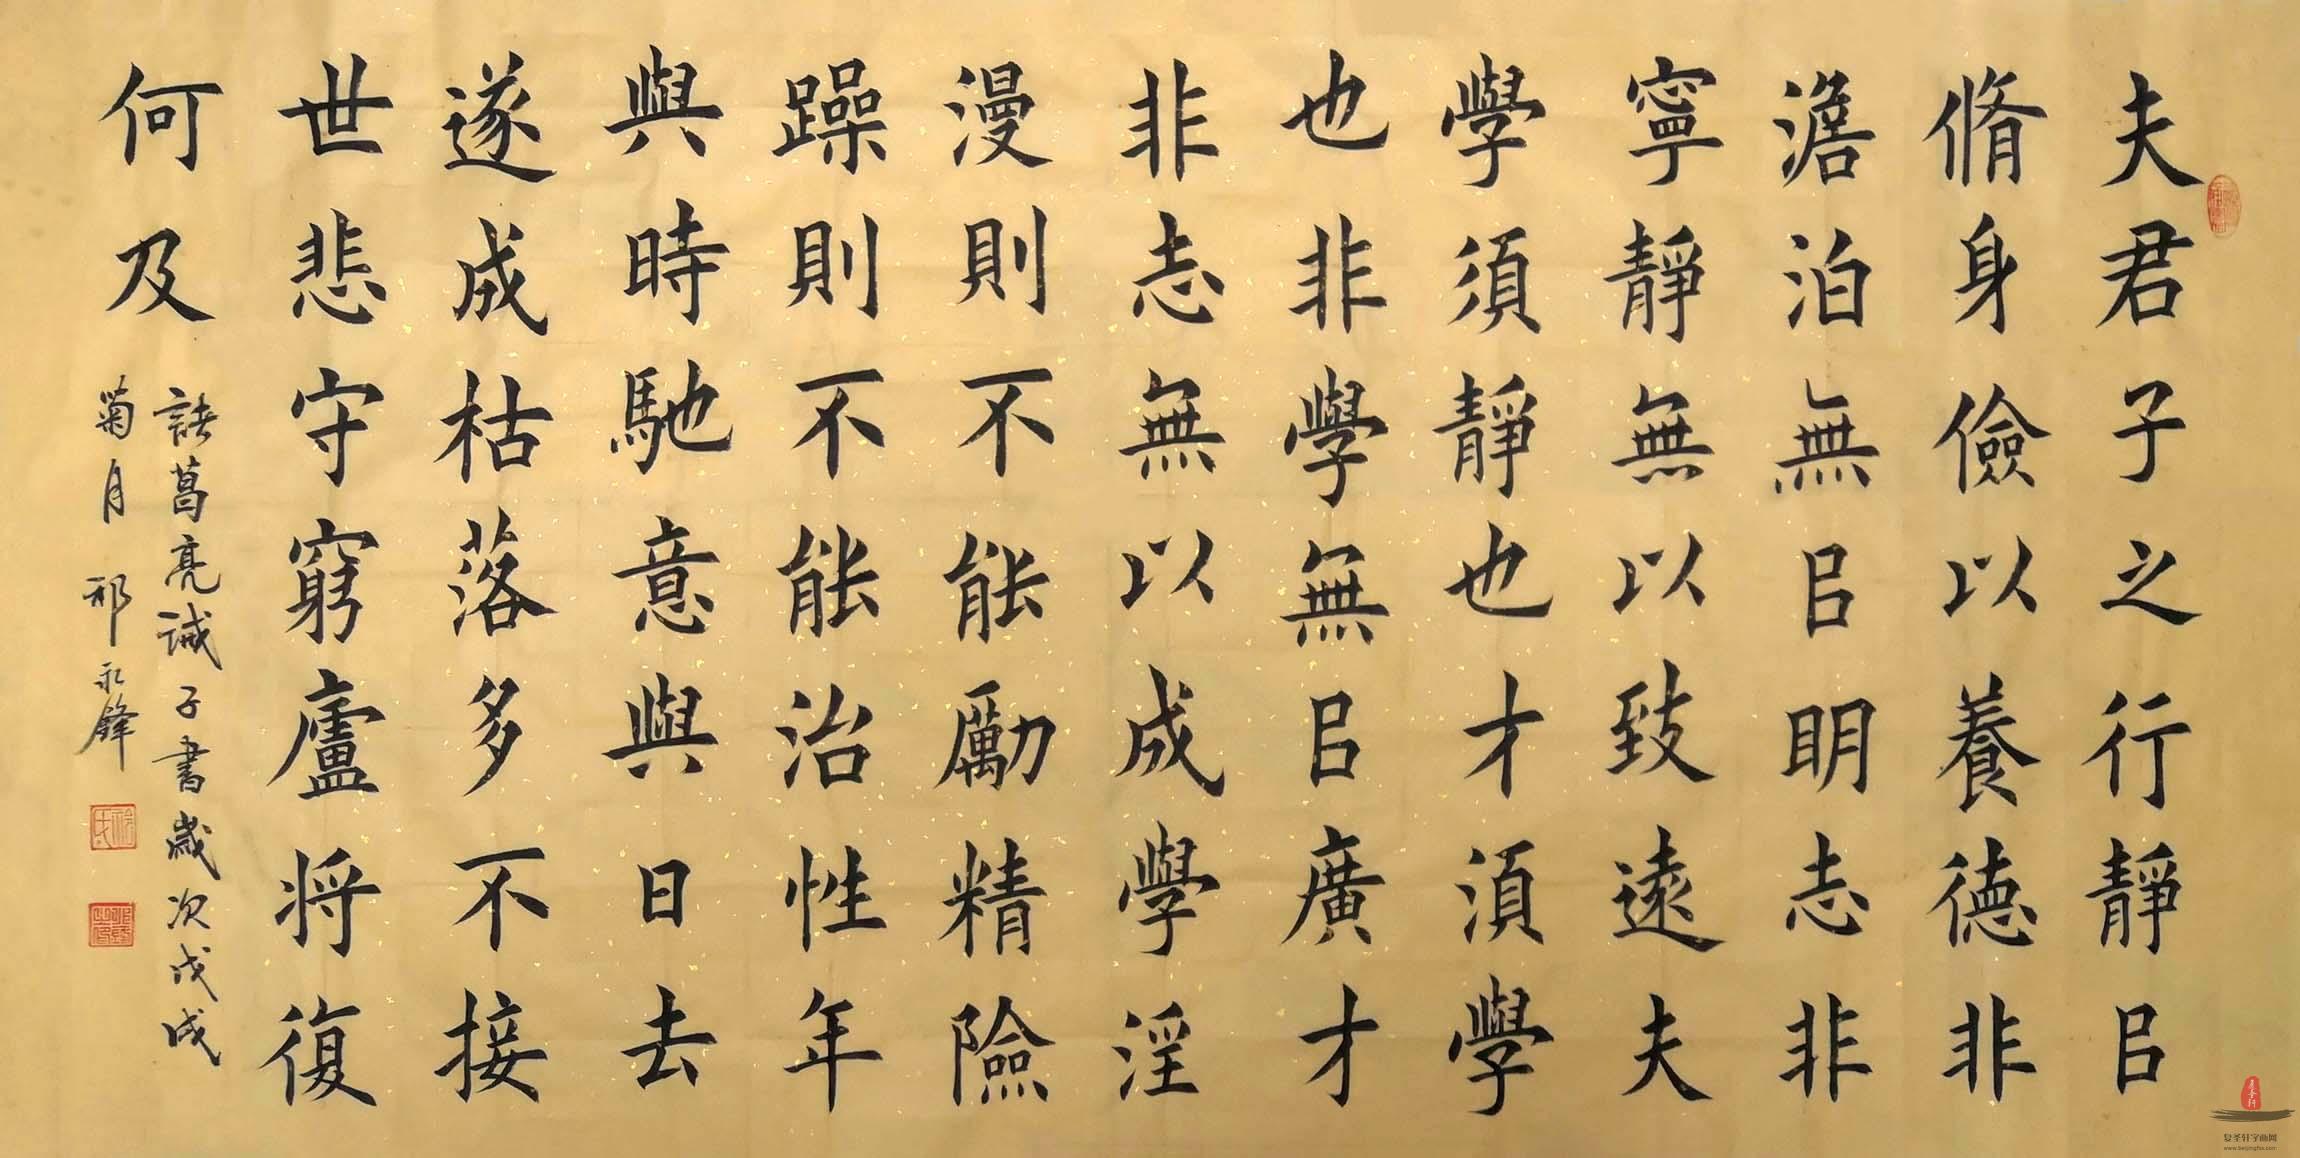 夫君子之行靜㠯
脩身儉以養德非
澹泊無㠯明志非
寧靜無以致遠夫
學須靜也才須學
也非學無㠯廣才
非志無以成學淫
漫則不能勵精險
躁則不能治性年
與時馳意與日去
遂成枯落多不接
世悲守窮廬將復
何及
諸葛亮誡子書歲次戊戌
菊月祁永鋒
复圣轩字画网
www.beijingfsx.com